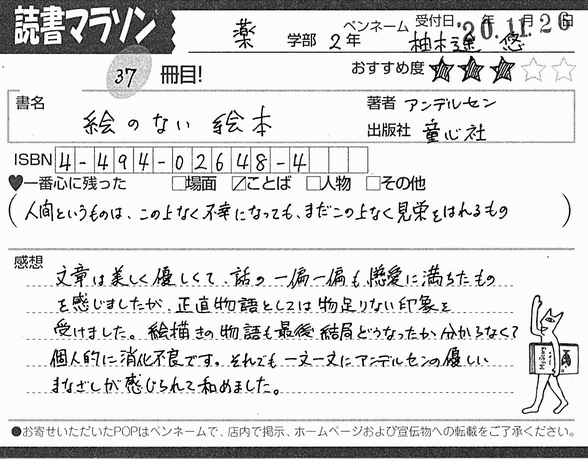 読書マラソン
薬 学部 2年 ペンネーム 柚木遥 悠 受付日 '20.11.26
年 月 日
37 冊目! おすすめ度 ★★★☆☆
書名 絵のない絵本
著者 アンデルセン
出版社 童心社
ISBN 4-494-02648-4
♥一番心に残った □場面 ☑ことば □人物 □その他
(人間というものは、この上なく不幸になっても、まだこの上なく見栄をはれるもの)
感想
文章は美しく優しくて、話の一偏一偏も慈愛に満ちたもの
を感じましたが、正直物語としては物足りない印象を
受けました。絵描きの物語も最後結局どうなったか分からなくて
個人的に消化不良です。それでも一文一文にアンデルセンの優しい
まなざしが感じられて和めました。
●お寄せいただいたPOPはペンネームで、店内で掲示、ホームページおよび宣伝物への転載をご了承ください。